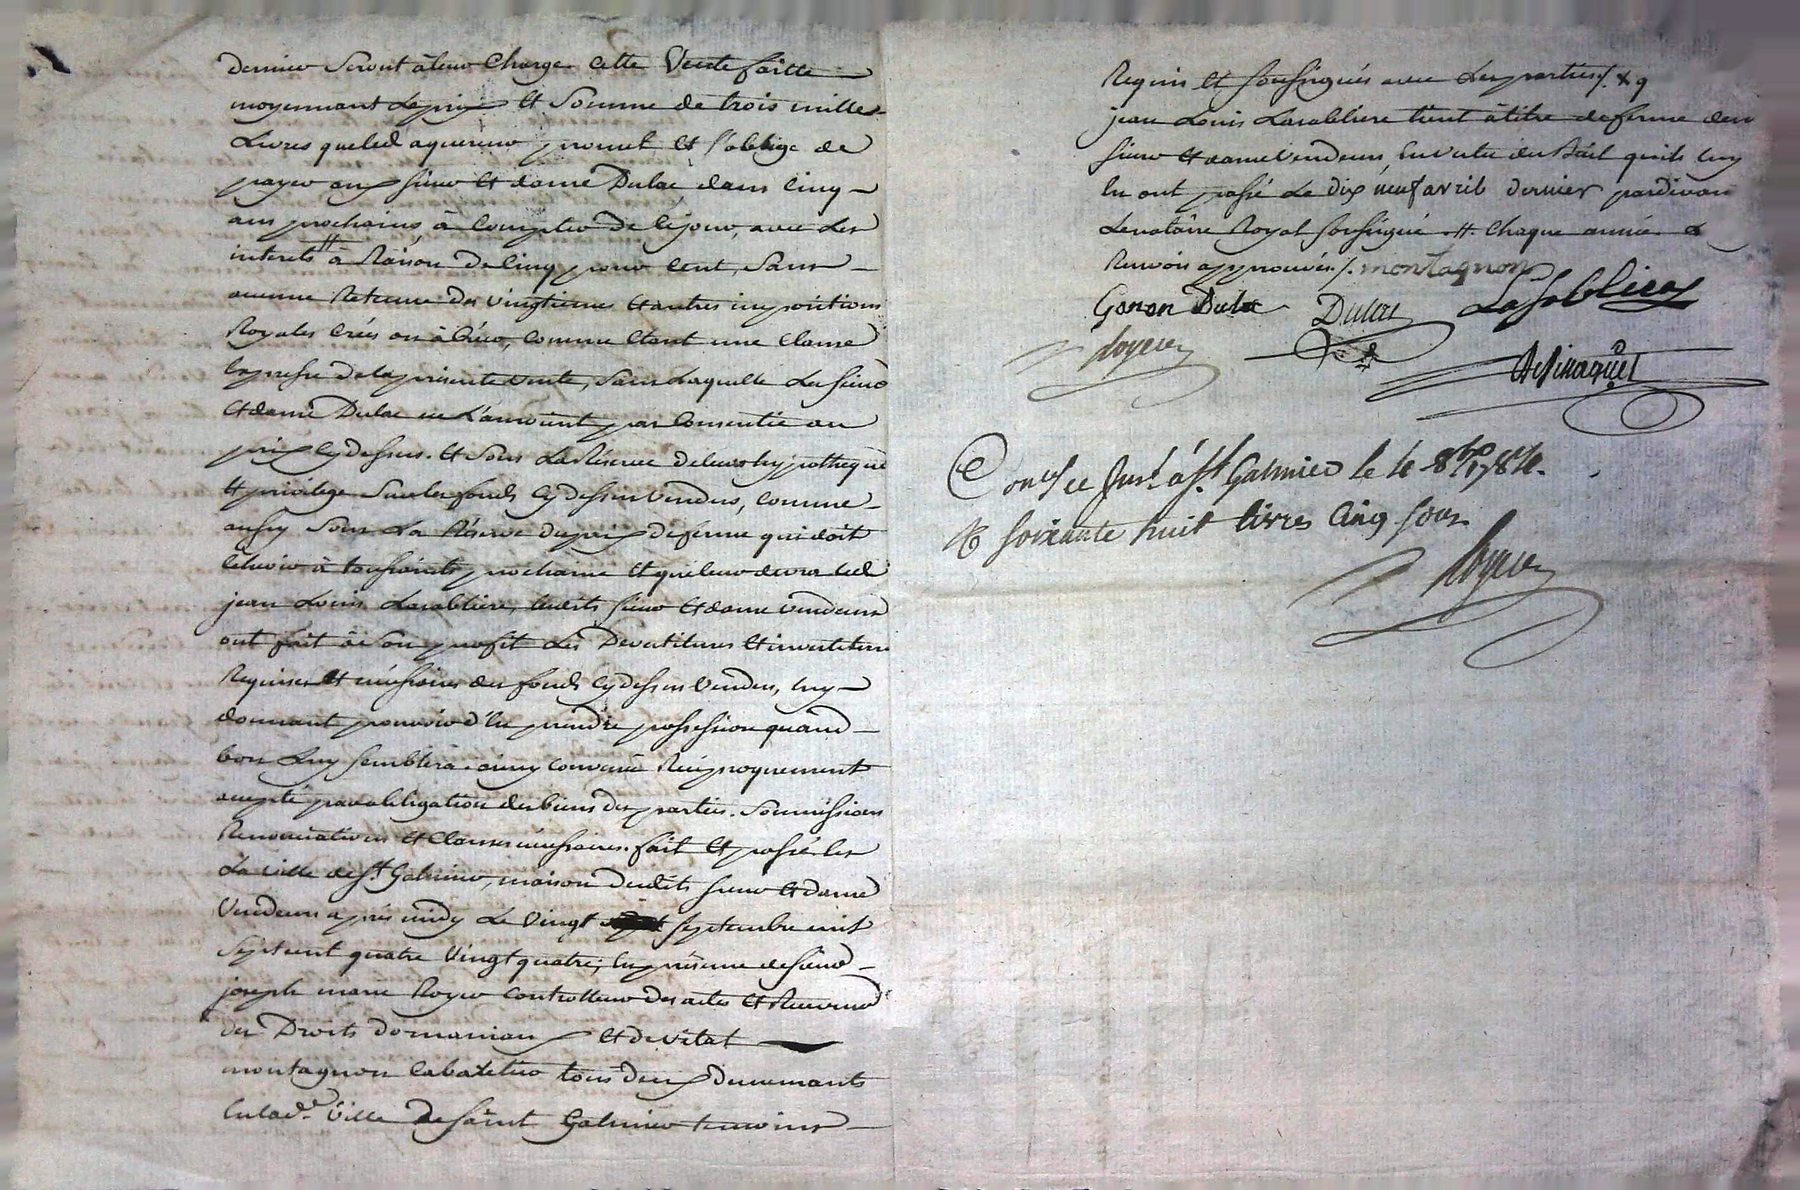 dernier seront à leur charge cette Vente faitte
moyennant le prix et somme de trois mille
Livres que led aquereur promet et s'oblige de
payer aux sieur et dame Dulac dans cinq
ans prochains à compter de ce jour, avec les
interets # à Raison de cinq pour cent, sans
aucune Retenue des vingtieme et autres impositions
Royales créés ou à créer, comme etant une clause
expresse de la presente vente, sans laquelle les sieur
et dame Dulac ne l'auroient pas consentie au
prix cy dessus. et sous la Réserve de leurs hypotheque
et privilege sur les fonds cy dessus vendus, comme
aussy sous la Réserve du prix de ferme qui doit
echeoir à toussaints prochaine et que leur devra led
jean Louis Lasabliere, lesdits sieur et dame vendeurs
ont fait à son profit les Devestitures et investitures
Requises et nécessaires des fonds cy dessus vendus, luy
donnant pouvoir d'en prendre possession quand
bon luy semblera. ainsy convenu Réciproquement
accepté par obligation des biens des parties. soumissions
Renonciations et clauses necessaires. fait et passé en
La ville de st Galmier, maison desdits sieur et dame
Vendeurs après midy le vingt septembre mil
sept cent quatre vingt quatre; en présence de sieur
joseph marie Royer controlleur des actes et Receveur
des Droits domaniaux et de vital
montagnon cabaretier tous deux demeurants
en lad.e ville de saint Galmier temoins
Requis et soussignés avec les parties /. x q
jean Louis Lasabliere tient à titre de ferme des
sieur et dame vendeurs en vertu du Bail qu'ils luy
en ont passé le dix neuf avril dernier pardevant
le notaire Royal soussigné .#. chaque année
Renvois approuvés /. montagnon
Gonon Dulac Dulac Lasabliere
Royer
Contlé et Insé à st Galmier le 4 8bre 1784.
R soixante huit livres cinq sous
Royer